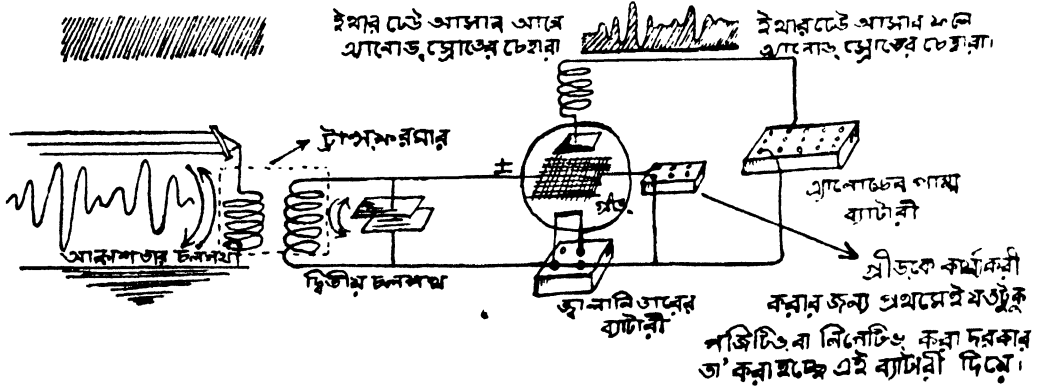 ইথার ঢেউ আসার আগে
এ্যানোড্ স্রোতের চেহারা
ইথার ঢেউ আসার ফলে
এ্যানোড্ স্রোতের চেহারা।
ট্রান্সফরমার
±
গ্রীড্
এ্যানোডের পাম্প
ব্যাটারী
আকাশতার চলপথ
দ্বিতীয় চলপথ
জ্বালানি তারের
ব্যাটারী
গ্রীডকে কার্য্যকরী
করার জন্য প্রথমেই যতটুকু
পজিটিভ্ বা নিগেটিভ্ করা দরকার
তা' করা হচ্ছে এই ব্যাটারী দিয়ে।